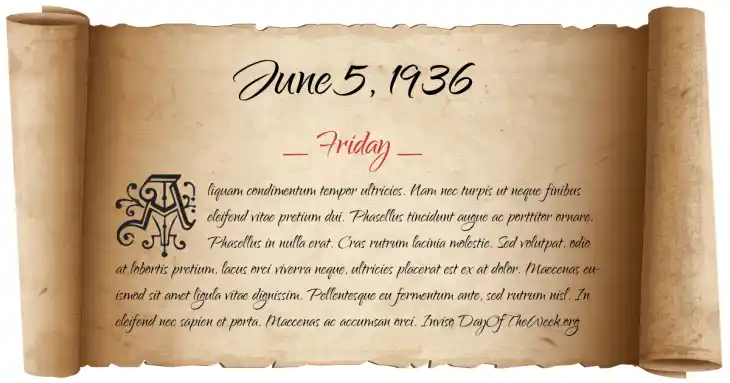 June 5, 1936
_ Friday _
Aliquam condimentum tempor ultricies. Nam nec turpis ut neque finibus
eleifend vitae pretium dui. Phasellus tincidunt augue ac porttitor ornare.
Phasellus in nulla erat. Cras rutrum lacinia molestie. Sed volutpat, odio
at lobortis pretium, lacus orci viverra neque, ultricies placerat est ex at dolor. Maecenas eu-
ismod sit amet ligula vitae dignissim. Pellentesque eu fermentum ante, sed rutrum nisl. In
eleifend nec sapien et porta. Maecenas ac accumsan orci. Inviso DayOfTheWeek.org